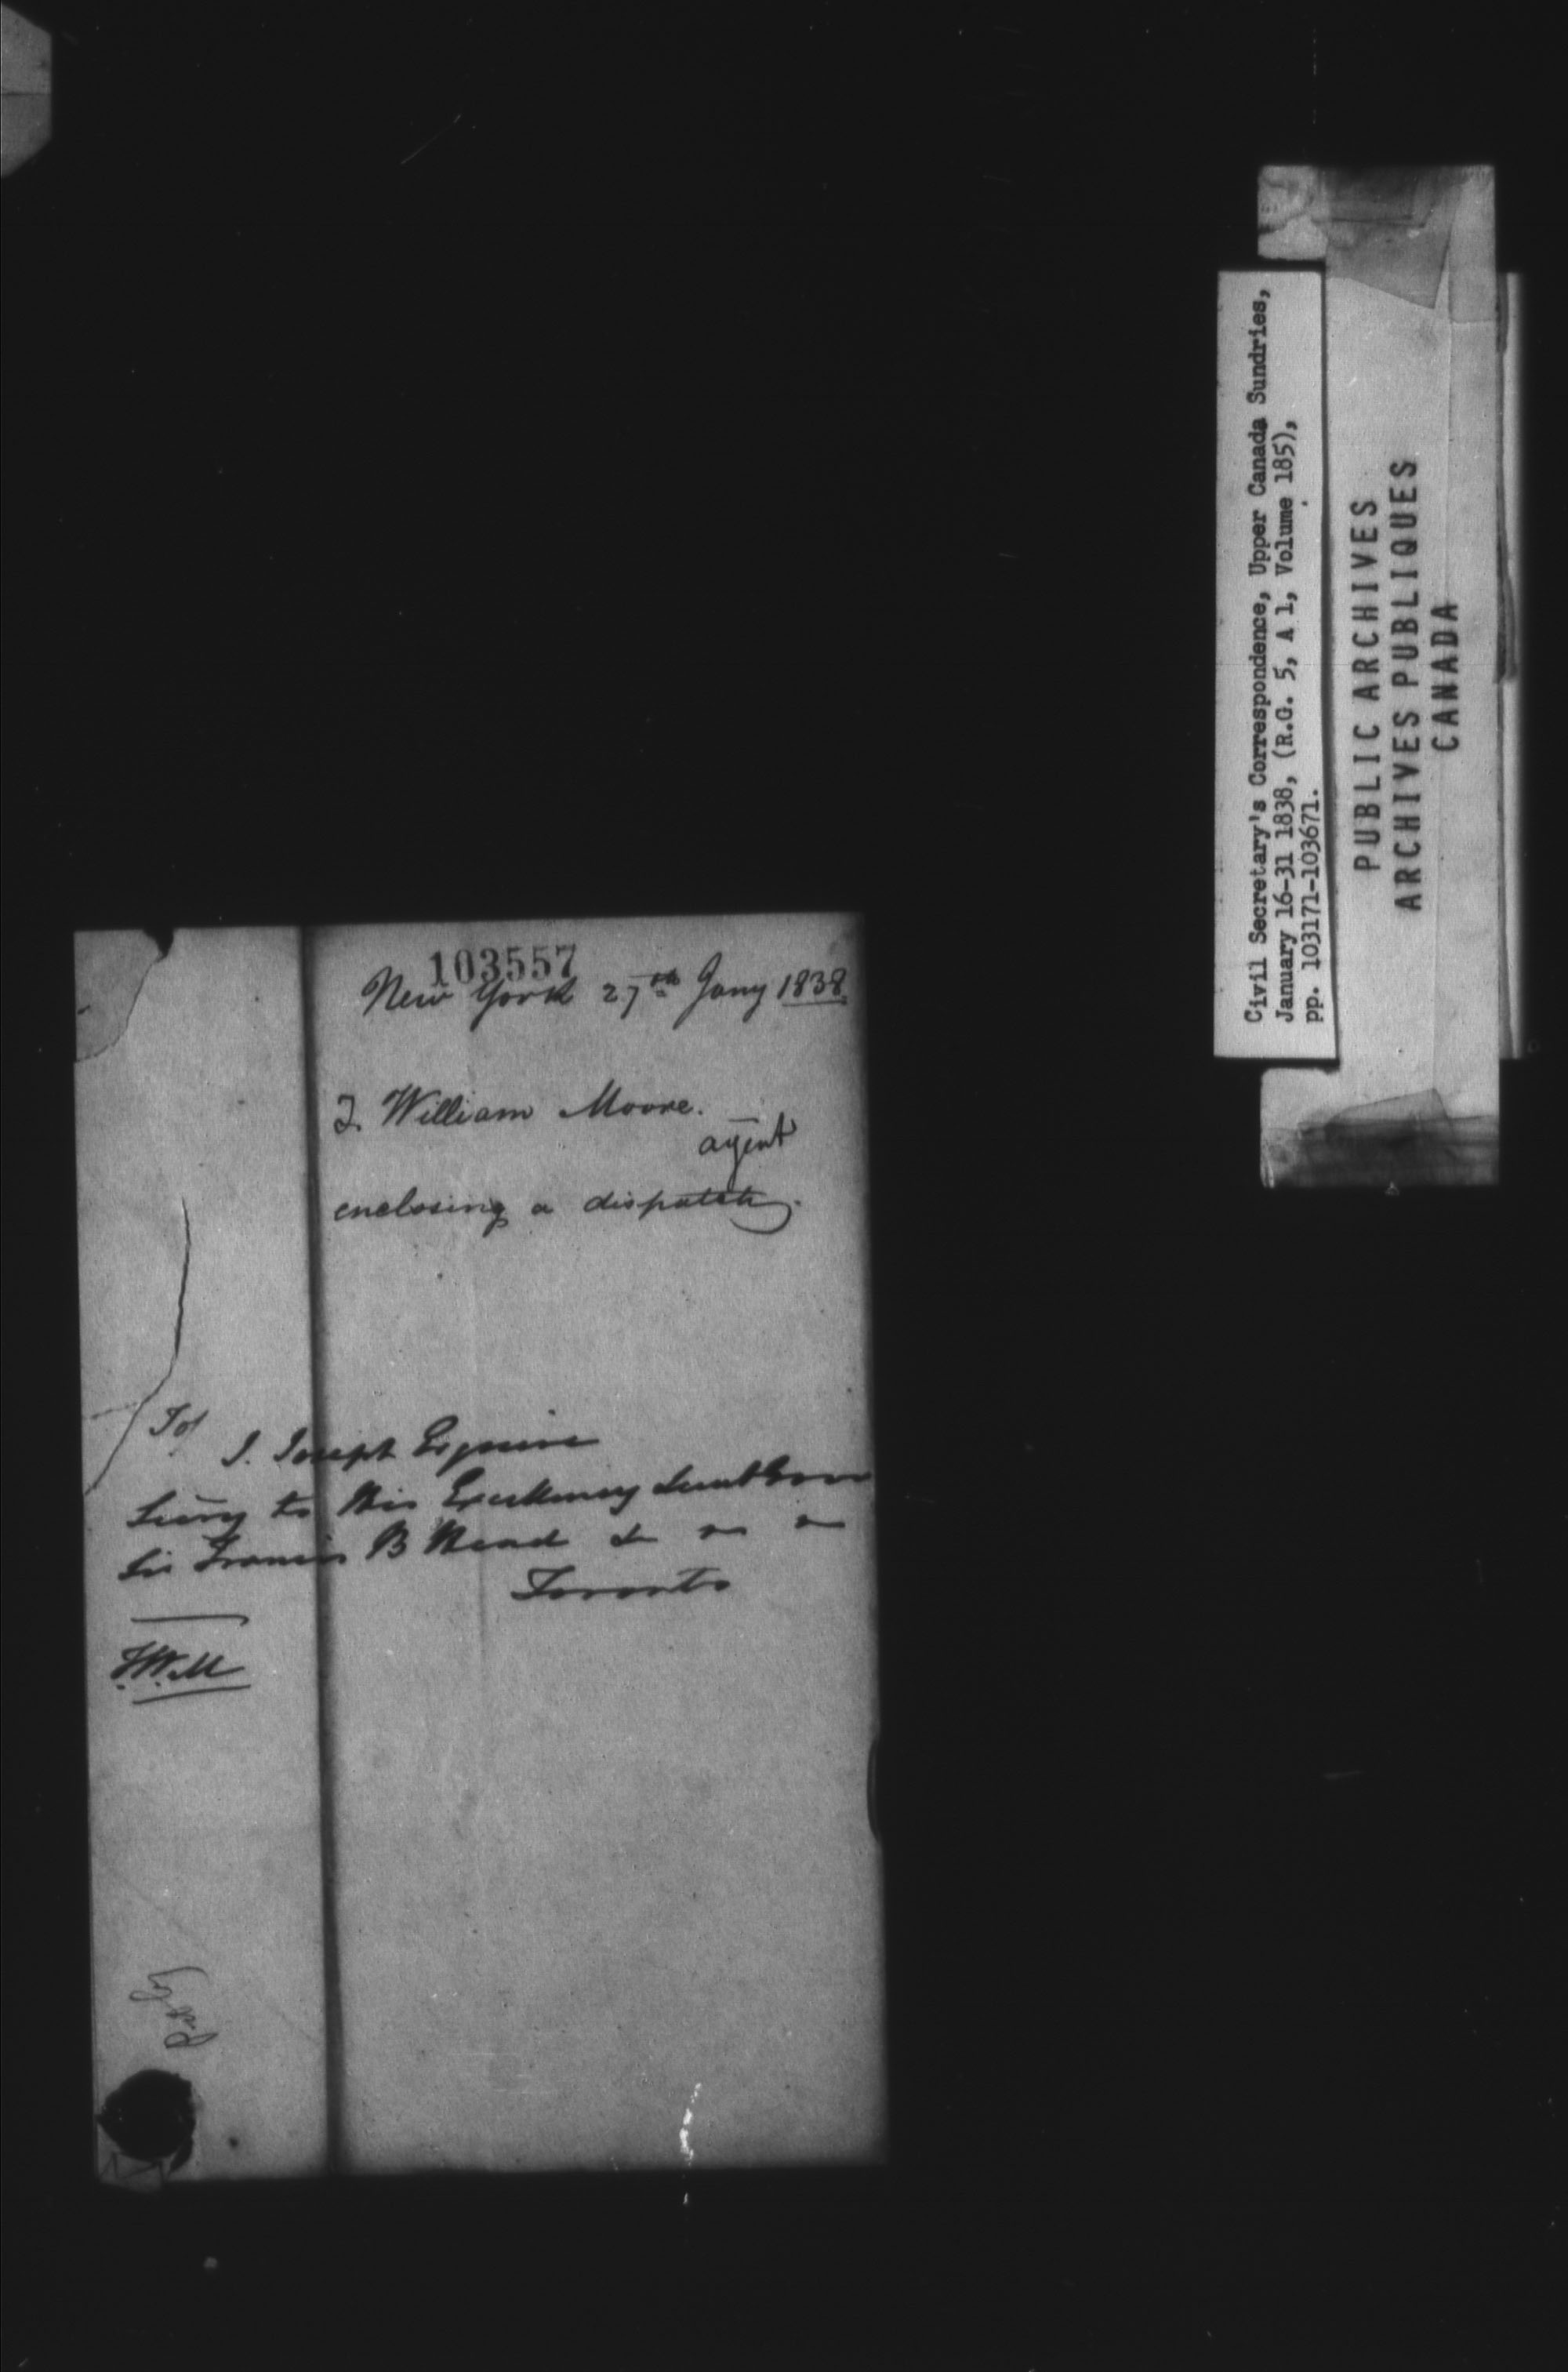 103557
New York 27th Jany 1838
T. William Moore.
agent
enclosing a dispatch.
To/
J. Joseph Esquire
Secry to His Excellency Lieut Gov
Sir Francis B Head &
Toronto
T.W.M
Civil Secretary's Correspondence, Upper Canada Sundries,
January 16-31 1838, (R.G. 5, A 1, Volume 185),
pp. 103171-103671.
PUBLIC ARCHIVES
ARCHIVES PUBLIQUES
CANADA